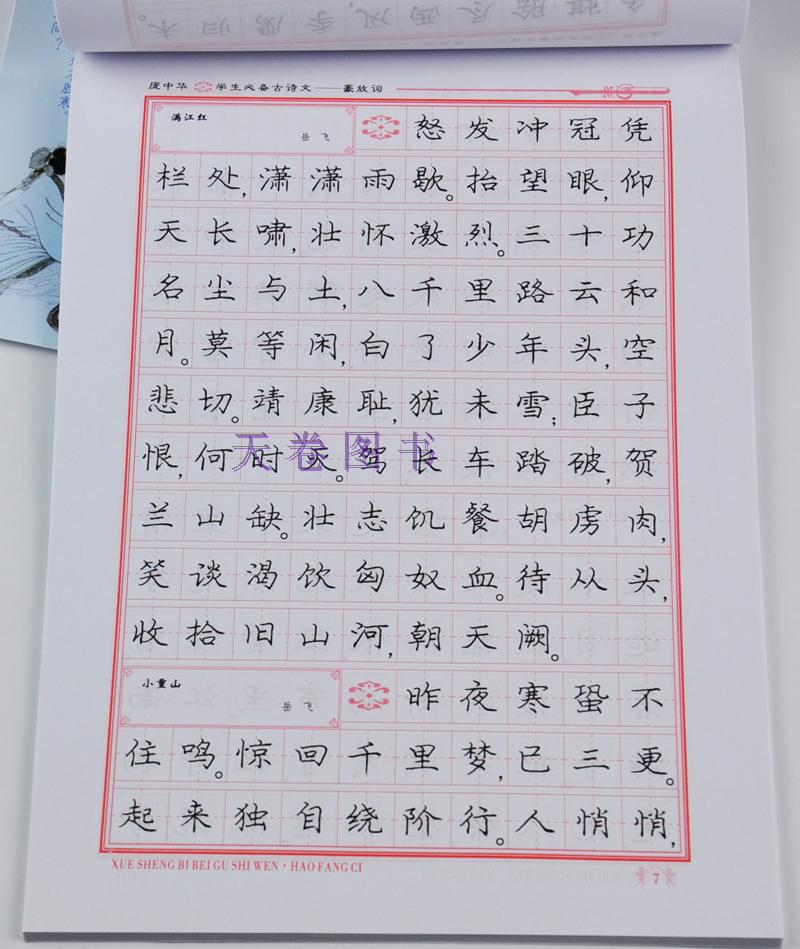 庞中华 学生必备古诗文——豪放词
满江红
岳飞
怒发冲冠凭
栏处,潇潇雨歇。抬望眼,仰
天长啸,壮怀激烈。三十功
名尘与土,八千里路云和
月。莫等闲,白了少年头,空
悲切。靖康耻,犹未雪;臣子
恨,何时灭。驾长车踏破,贺
兰山缺。壮志饥餐胡虏肉,
笑谈渴饮匈奴血。待从头,
收拾旧山河,朝天阙。
天卷图书
小重山
岳飞
昨夜寒蛩不
住鸣。惊回千里梦,已三更。
起来独自绕阶行。人悄悄,
XUE SHENG BI BEI GU SHI WEN·HAO FANG CI
7